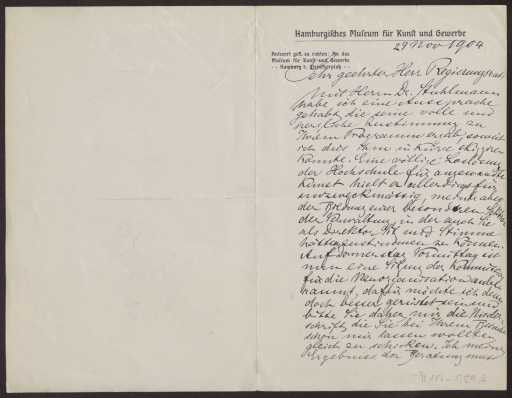 Hamburgisches Museum für Kunst und Gewerbe
Antwort gefl. zu richten: An das
Museum für Kunst und Gewerbe
Hamburg 5, Steintorplatz
29 Nov 1904
Sehr geehrter Herr Regierungsrat,
Mit Herrn Dr. Stuhlmann
habe ich eine Aussprache
gehabt, die seine volle und
herzliche Zustimmung zu
Ihrem Programm ergab, soweit
ich dies ihm in Kürze skizziren
konnte. Eine völlige
der Hochschule für angewandte
Kunst hielt er allerdings für
unzweckmässig, meinte aber
der Bildung einer besonderen
der Verwaltung, in der auch Sie
als Direktor Sitz und Stimme
hätten, zustimmen zu können.
Auf Donnerstag Vormittag ist
nun eine Sitzung der Kommission
für die Reorganisation anbe-
raumt, dafür möchte ich denn
doch besser gerüstet sein und
bitte Sie daher, mir die Nieder-
schrift, die Sie bei Ihrem Besuche
schon mir lassen wollten,
gleich zu schicken. Ich meine
Ergebniss der Beratung muss